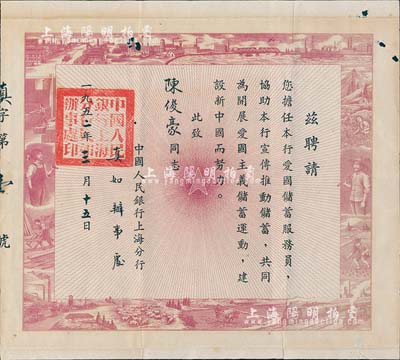 上海陽明拍賣
茲聘請
您擔任本行愛國儲蓄服務員，
協助本行宣傳推動儲蓄，共同
為開展愛國主義儲蓄運動，建
設新中國而努力。
此致
陳俊豪同志
中國人民銀行上海分行
真如辦事處
一九五二年三月十五日
真字第壹號
上海陽明拍賣
上海陽明拍賣